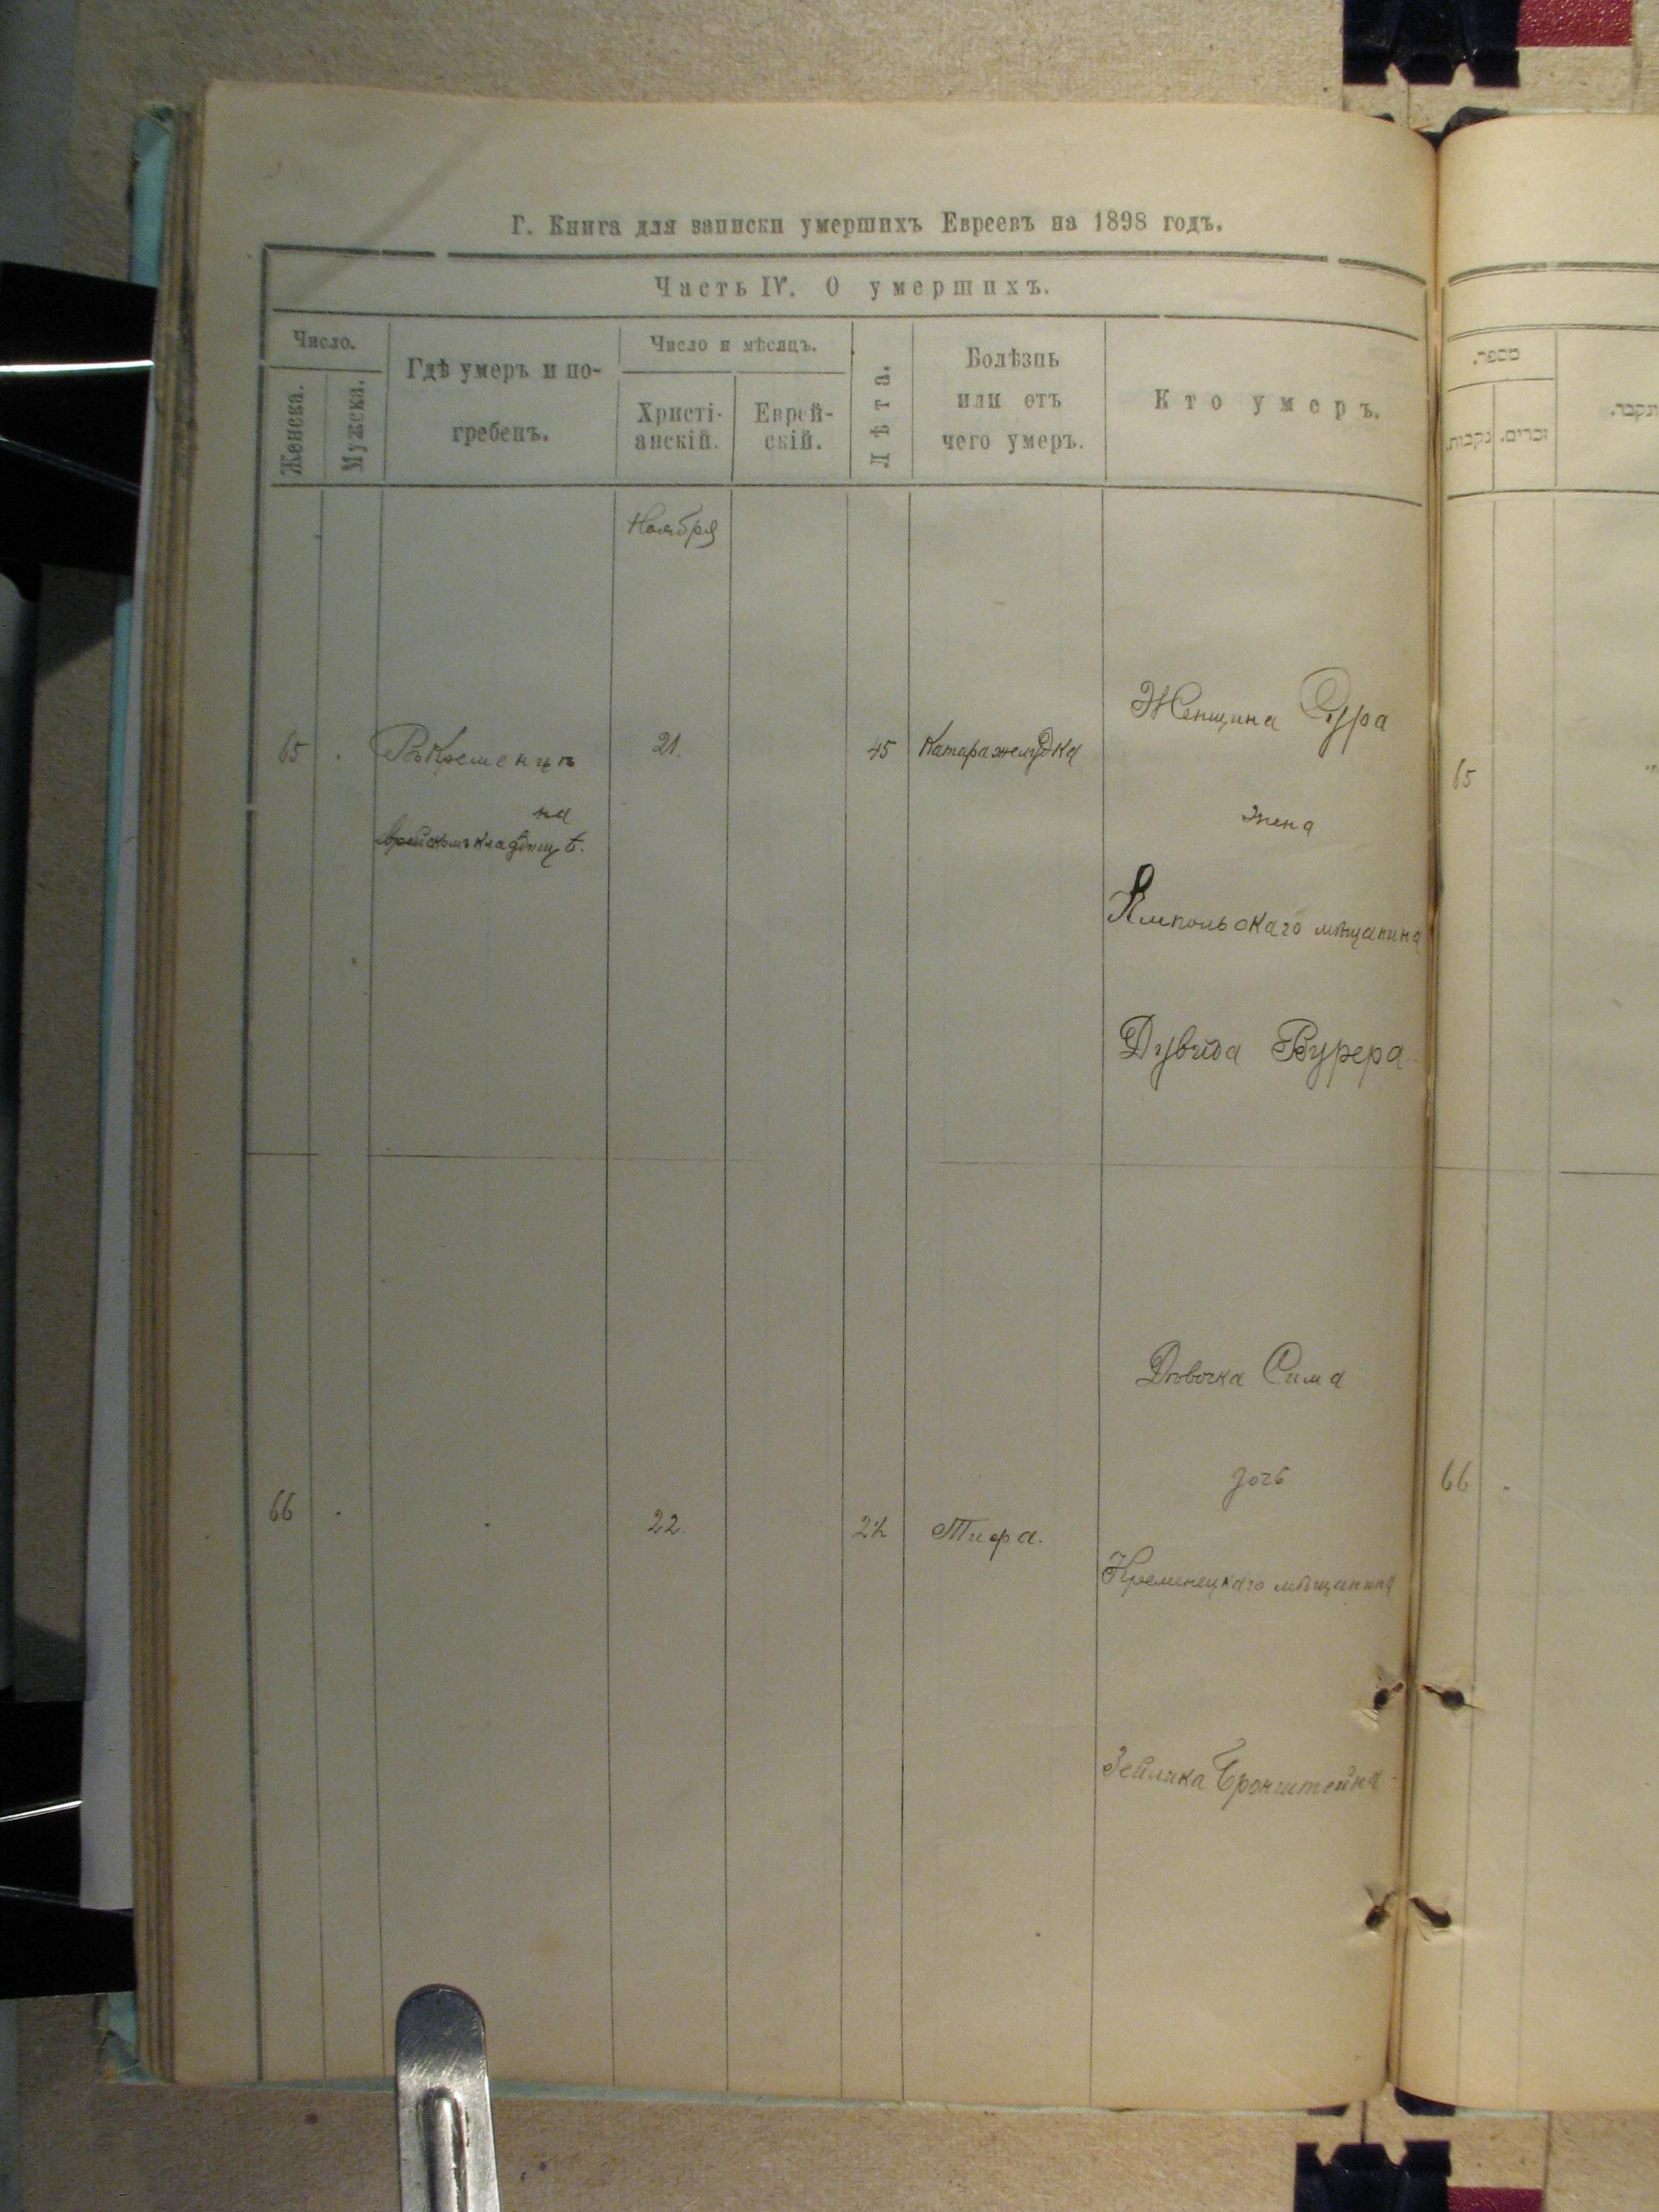 Г. Книга для записки умершихъ Евреевъ на 1898 годъ.
Часть IV. О умершихъ.
Число.
Женска.
Мужска.
Гдѣ умеръ и по-
гребенъ.
Число и мѣсяцъ.
Христі-
анскій.
Еврей-
скій.
Лѣта.
Болѣзнь
или отъ
чего умеръ.
Кто умеръ.
מספר.
נקבות.
זכרים.
ונקבר.
Ноября
Женщина Сура
65 Въ Кременцѣ 21. 45 Катара желудка
65
на
жена
еврейскомъ кладбищѣ.
Ямпольскаго мѣщанина
Дувида Вурера
Дѣвочка Сима
дочь
66 22. Тифа.
66
Кременецкаго мѣщанина
Зейлика Бронштейна